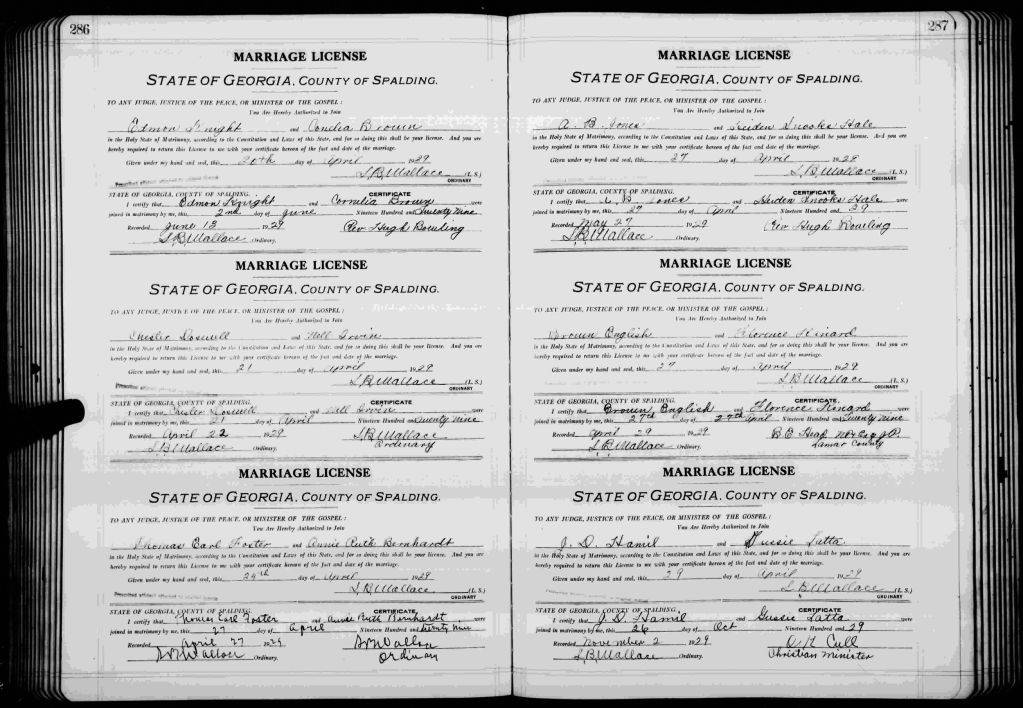 286
MARRIAGE LICENSE
STATE OF GEORGIA, COUNTY OF SPALDING.
TO ANY JUDGE, JUSTICE OF THE PEACE, OR MINISTER OF THE GOSPEL:
You Are Hereby Authorized to Join
Edmon Knight and Conelia Brown
in the Holy State of Matrimony, according to the Constitution and Laws of this State, and for so doing this shall be your license. And you are
hereby required to return this License to me with your certificate hereon of the fact and date of the marriage.
Given under my hand and seal, this 20th day of April 1929
S.B. Wallace (L.S.)
ORDINARY
STATE OF GEORGIA, COUNTY OF SPALDING. CERTIFICATE
I certify that Edmon Knight and Cornelia Brown were
joined in matrimony by me, this 2nd day of June Nineteen Hundred and Twenty Nine
Recorded June 13 1929 Rev Hugh Bowling
S.B. Wallace Ordinary.
MARRIAGE LICENSE
STATE OF GEORGIA, COUNTY OF SPALDING.
TO ANY JUDGE, JUSTICE OF THE PEACE, OR MINISTER OF THE GOSPEL:
You Are Hereby Authorized to Join
and Nell Irvin
in the Holy State of Matrimony, according to the Constitution and Laws of this State, and for so doing this shall be your license. And you are
hereby required to return this License to me with your certificate hereon of the fact and date of the marriage.
Given under my hand and seal, this 21 day of April 1929
S.B. Wallace (L.S.)
ORDINARY
STATE OF GEORGIA, COUNTY OF SPALDING. CERTIFICATE
I certify that and Nell Irvin were
joined in matrimony by me, this 21 day of April Nineteen Hundred and Twenty Nine
Recorded April 22 1929 S.B. Wallace
S.B. Wallace Ordinary. Ordinary
MARRIAGE LICENSE
STATE OF GEORGIA, COUNTY OF SPALDING.
TO ANY JUDGE, JUSTICE OF THE PEACE, OR MINISTER OF THE GOSPEL:
You Are Hereby Authorized to Join
Thomas Earl Foster and Annie Ruth Bernhardt
in the Holy State of Matrimony, according to the Constitution and Laws of this State, and for so doing this shall be your license. And you are
hereby required to return this License to me with your certificate hereon of the fact and date of the marriage.
Given under my hand and seal, this day of April 1929
S.B. Wallace (L.S.)
ORDINARY
STATE OF GEORGIA, COUNTY OF SPALDING. CERTIFICATE
I certify that Thomas Earl Foster and Annie Ruth Bernhardt were
joined in matrimony by me, this 27 day of April Nineteen Hundred and twenty nine
Recorded April 27 1929 Wallace
Wallace Ordinary. Ordinary
287
MARRIAGE LICENSE
STATE OF GEORGIA, COUNTY OF SPALDING.
TO ANY JUDGE, JUSTICE OF THE PEACE, OR MINISTER OF THE GOSPEL:
You Are Hereby Authorized to Join
A. B. Jones and Snooks Hale
in the Holy State of Matrimony, according to the Constitution and Laws of this State, and for so doing this shall be your license. And you are
hereby required to return this License to me with your certificate hereon of the fact and date of the marriage.
Given under my hand and seal, this 27 day of April 1929
S.B. Wallace (L.S.)
ORDINARY
STATE OF GEORGIA, COUNTY OF SPALDING. CERTIFICATE
I certify that A. B Jones and Snooks Hale were
joined in matrimony by me, this 27 day of April Nineteen Hundred and 29
Recorded May 27 1929 Rev Hugh Bowling
S.B. Wallace Ordinary.
MARRIAGE LICENSE
STATE OF GEORGIA, COUNTY OF SPALDING.
TO ANY JUDGE, JUSTICE OF THE PEACE, OR MINISTER OF THE GOSPEL:
You Are Hereby Authorized to Join
Brown English and Florence Hinard
in the Holy State of Matrimony, according to the Constitution and Laws of this State, and for so doing this shall be your license. And you are
hereby required to return this License to me with your certificate hereon of the fact and date of the marriage.
Given under my hand and seal, this 27 day of April 1929
S.B. Wallace (L.S.)
ORDINARY
STATE OF GEORGIA, COUNTY OF SPALDING. CERTIFICATE
I certify that Brown English and Florence Hinard were
joined in matrimony by me, this 27th day of 27th April Nineteen Hundred and Twenty nine
Recorded April 29 1929 B.E. J.P.
S.B. Wallace Ordinary. Lamar County
MARRIAGE LICENSE
STATE OF GEORGIA, COUNTY OF SPALDING.
TO ANY JUDGE, JUSTICE OF THE PEACE, OR MINISTER OF THE GOSPEL:
You Are Hereby Authorized to Join
J. D. Hamil and Gussie Latta
in the Holy State of Matrimony, according to the Constitution and Laws of this State, and for so doing this shall be your license. And you are
hereby required to return this License to me with your certificate hereon of the fact and date of the marriage.
Given under my hand and seal, this 29 day of April 1929
S.B. Wallace (L.S.)
ORDINARY
STATE OF GEORGIA, COUNTY OF SPALDING. CERTIFICATE
I certify that J. D. Hamil and Gussie Latta were
joined in matrimony by me, this 26 day of Oct Nineteen Hundred and 29
Recorded November 2 1929 Cull
S.B. Wallace Ordinary. Christian Minister